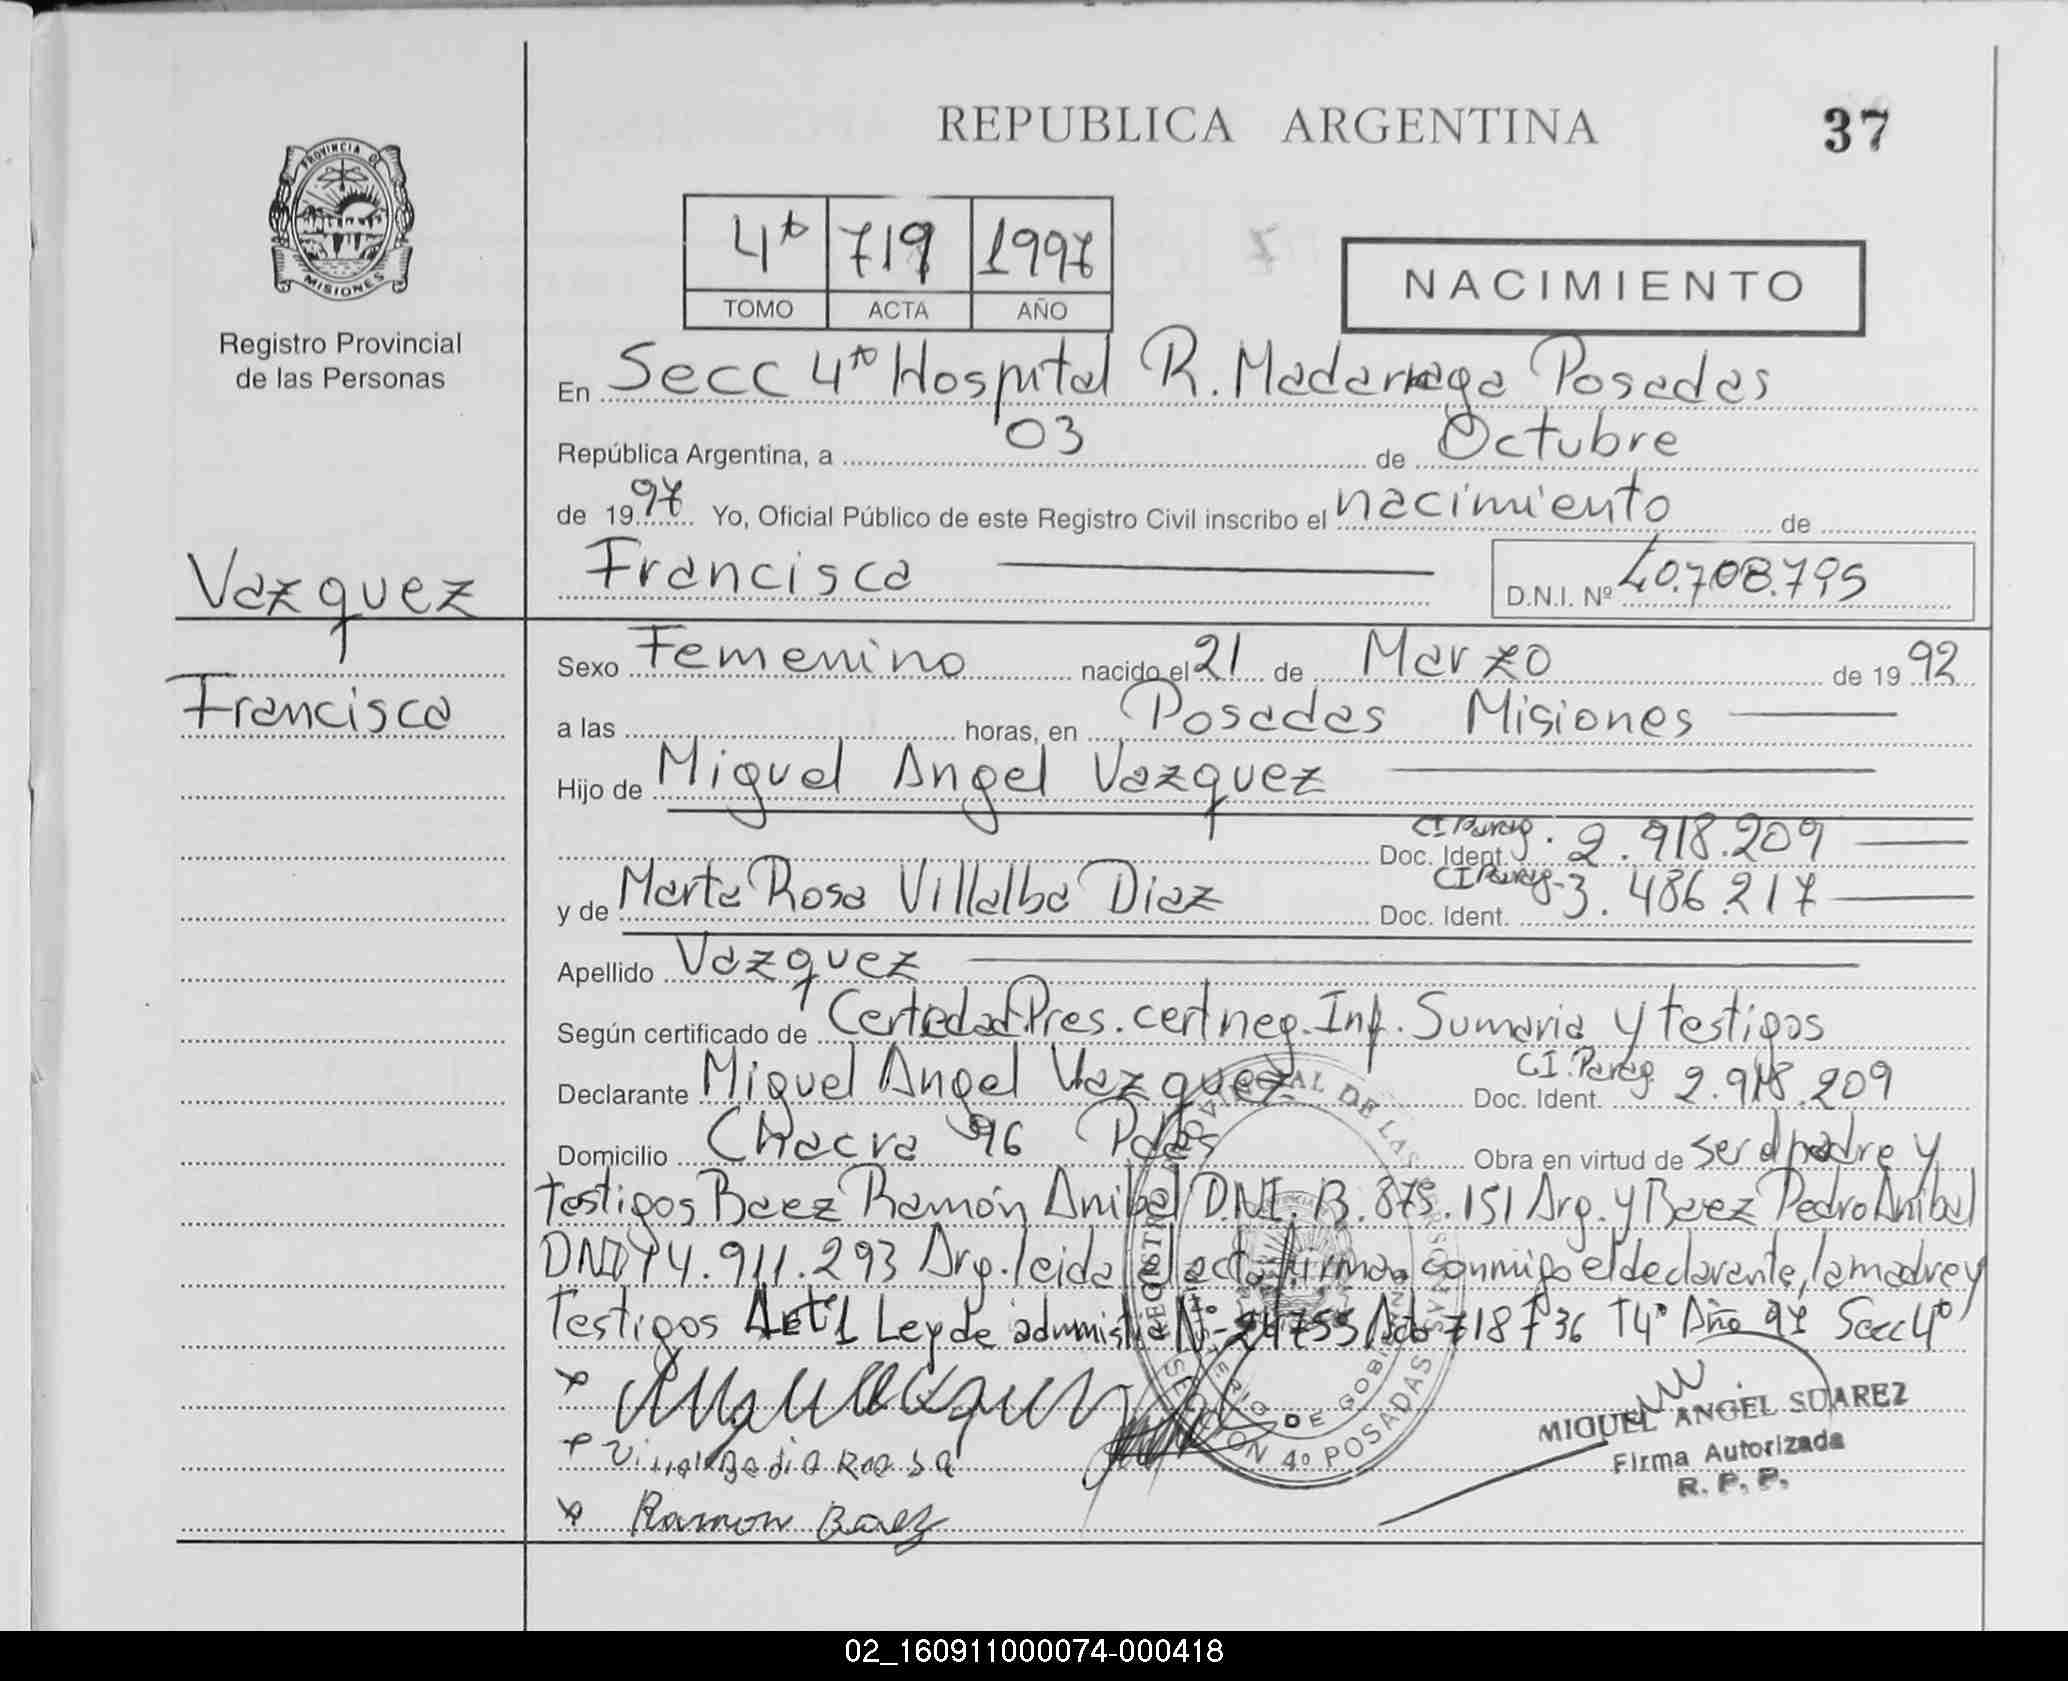 REPUBLICA ARGENTINA
37
PROVINCIA D MISIONES
Registro Provincial
de las Personas
4to 719 1997
TOMO ACTA AÑO
NACIMIENTO
En Secc 4to Hospital R. Madariaga Posadas
República Argentina, a 03 de Octubre
de 1997 Yo, Oficial Público de este Registro Civil inscribo el nacimiento de
Vazquez
Francisca
Francisca D.N.I. Nº 40.708.795
Sexo Femenino nacido el 21 de Marzo de 1992
a las horas, en Posadas Misiones
Hijo de Miguel Angel Vazquez
Doc. Ident. CI Parag. 2.918.209
y de Marta Rosa Villalba Diaz Doc. Ident. CI Parag. 3.486.217
Apellido Vazquez
Según certificado de Cert edad Pres. cert neg. Inf. Sumaria y testigos
Declarante Miguel Angel Vazquez Doc. Ident. CI. Parag. 2.918.209
Domicilio Chacra 96 Pdas Obra en virtud de ser el padre y
testigos Baez Ramón Anibal D.N.I. 13.878.151 Arg. y Baez Pedro Anibal
DNI 14.911.293 Arg. leida el acta firman conmigo el declarante, la madre y
Testigos Art 1 Ley de administ Nº 24755 Acta 718 F 36 T 4º Año 97 Secc 4º
REGISTRO PROVINCIAL DE LAS PERSONAS
MINISTERIO DE GOBIERNO
SECCION 4º POSADAS
Ramon Baez
MIGUEL ANGEL SUAREZ
Firma Autorizada
R. P. P.
02_160911000074-000418